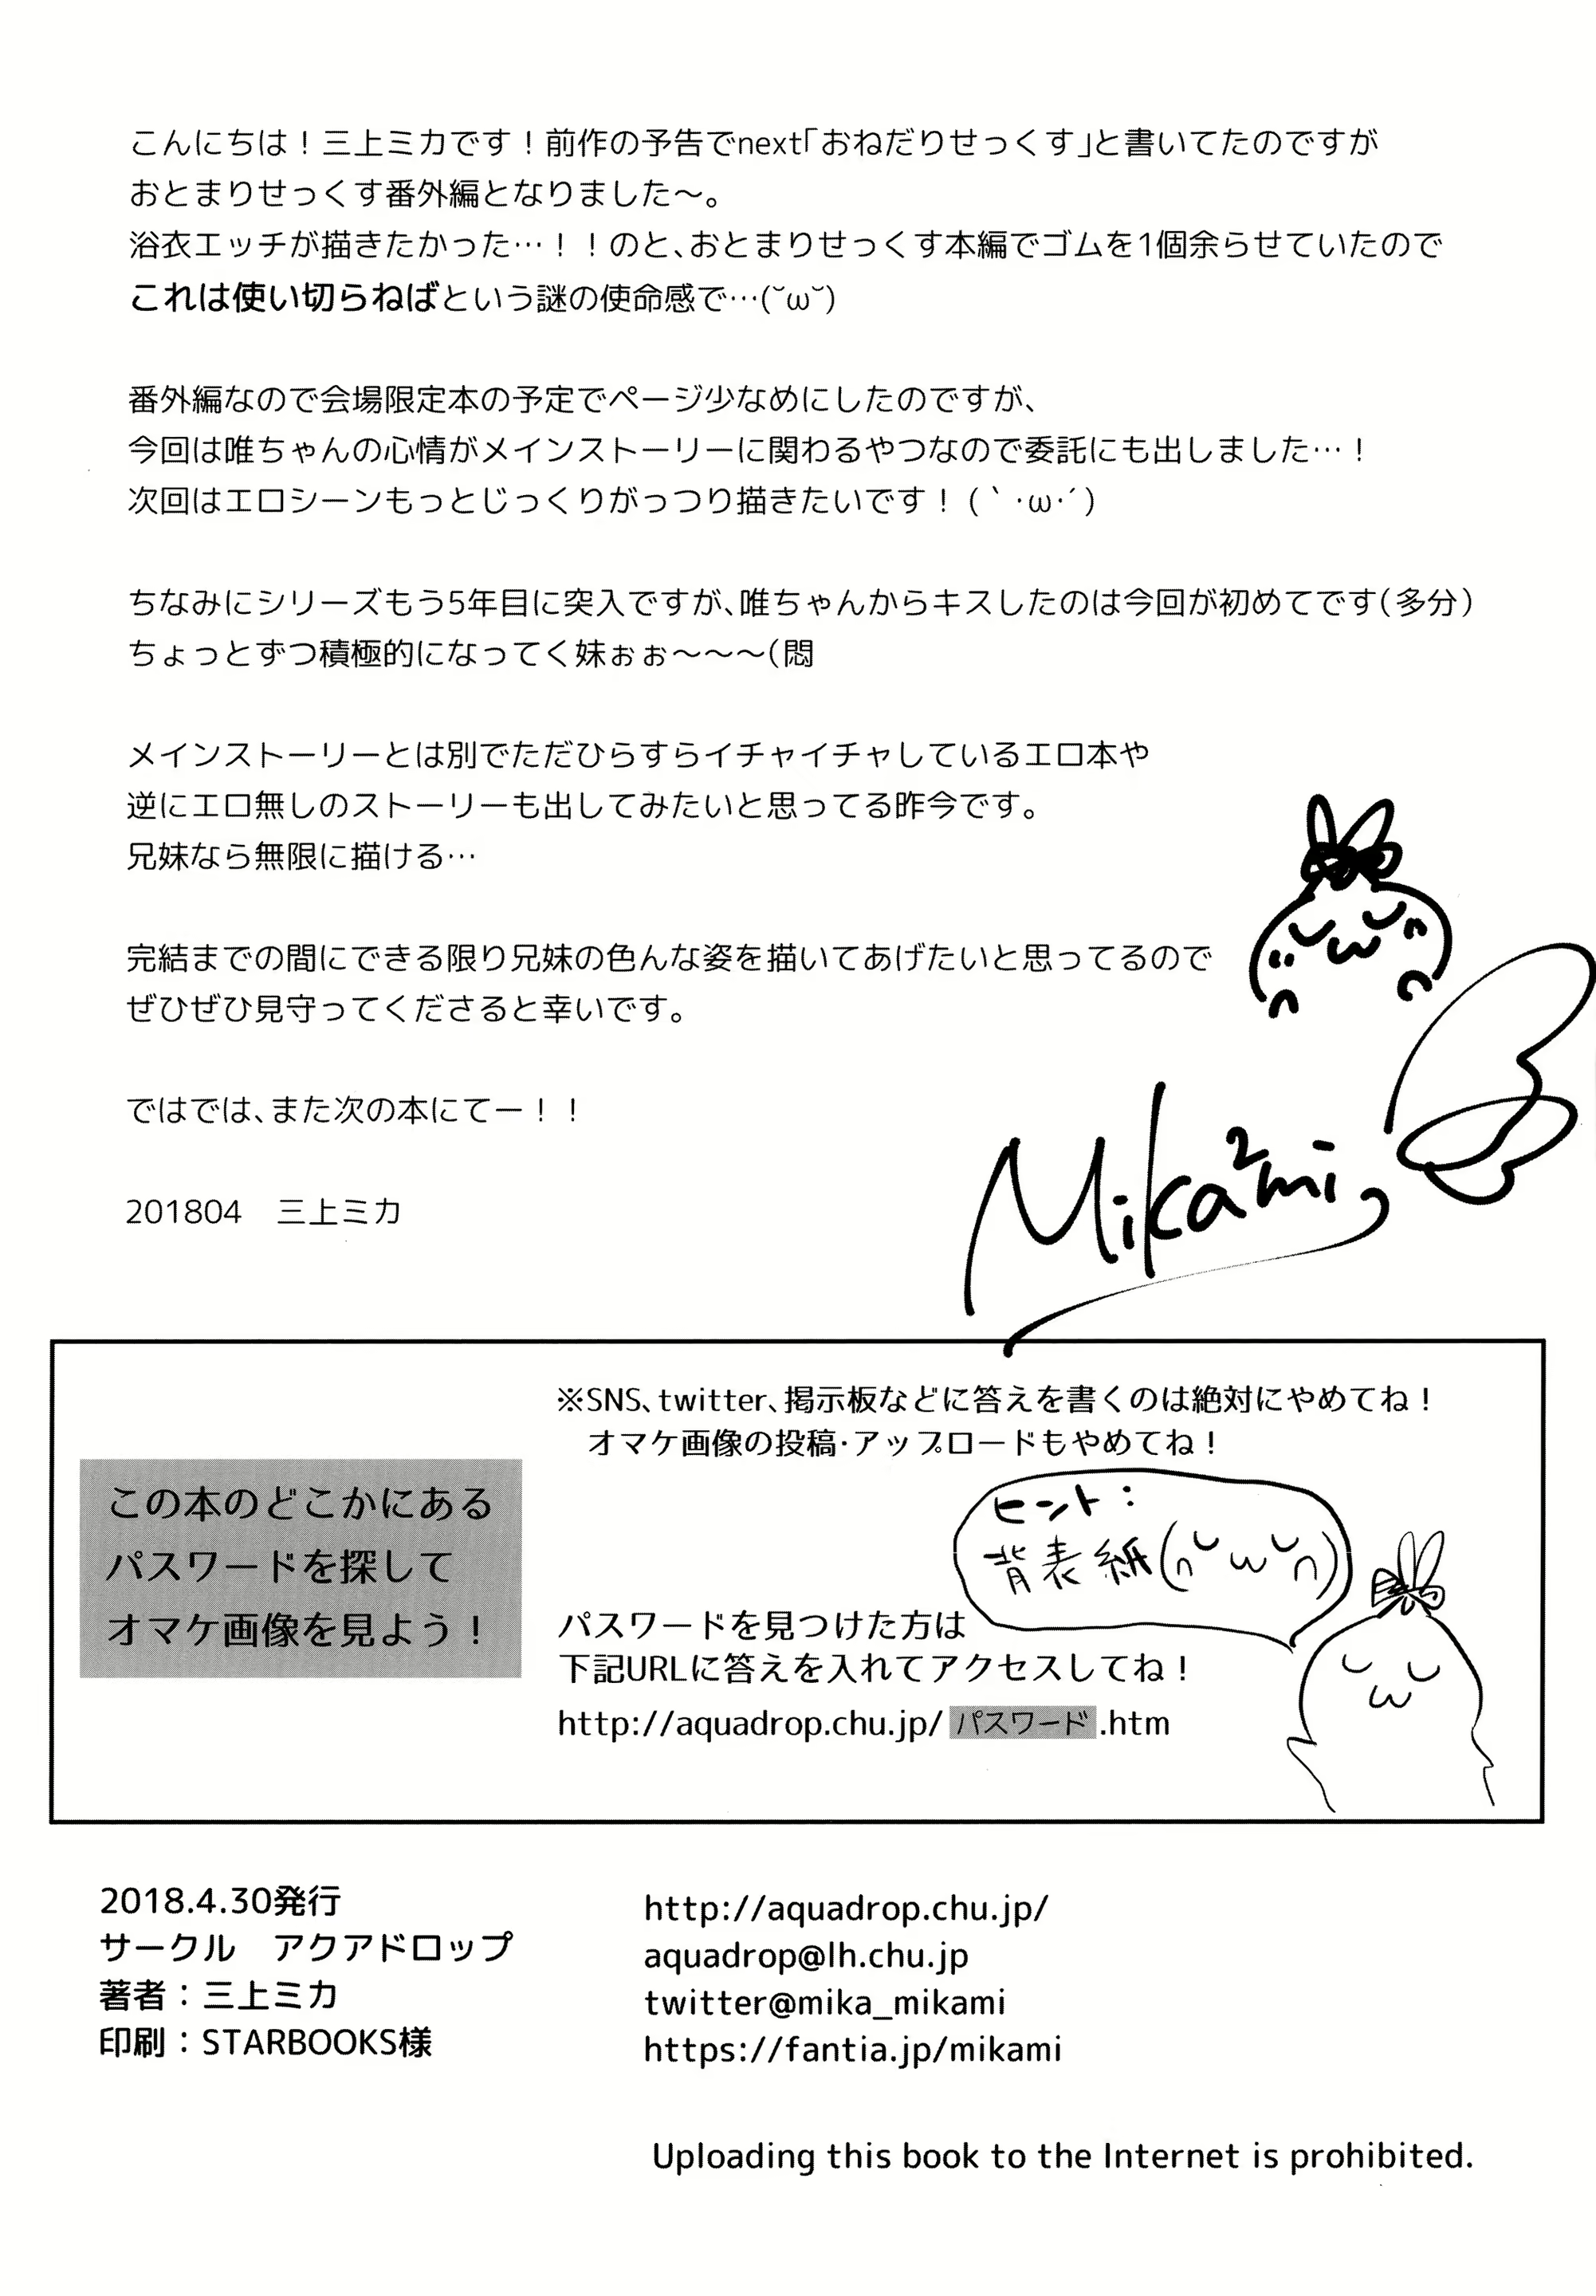 こんにちは！三上ミカです！前作の予告でnext「おねだりせっくす」と書いてたのですが
おとまりせっくす番外編となりました～。
浴衣エッチが描きたかった…！！のと、おとまりせっくす本編でゴムを1個余らせていたので
これは使い切らねばという謎の使命感で…(˘ω˘)
番外編なので会場限定本の予定でページ少なめにしたのですが、
今回は唯ちゃんの心情がメインストーリーに関わるやつなので委託にも出しました…！
次回はエロシーンもっとじっくりがっつり描きたいです！(｀・ω・´)
ちなみにシリーズもう5年目に突入ですが、唯ちゃんからキスしたのは今回が初めてです(多分)
ちょっとずつ積極的になってく妹ぉぉ～～～(悶
メインストーリーとは別でただひらすらイチャイチャしているエロ本や
逆にエロ無しのストーリーも出してみたいと思ってる昨今です。
兄妹なら無限に描ける…
完結までの間にできる限り兄妹の色んな姿を描いてあげたいと思ってるので
ぜひぜひ見守ってくださると幸いです。
ではでは、また次の本にてー！！
201804　三上ミカ
Mika²mi
この本のどこかにある
パスワードを探して
オマケ画像を見よう！
※SNS、twitter、掲示板などに答えを書くのは絶対にやめてね！
オマケ画像の投稿・アップロードもやめてね！
ヒント：
背表紙(∩˘ω˘∩)
パスワードを見つけた方は
下記URLに答えを入れてアクセスしてね！
http://aquadrop.chu.jp/パスワード.htm
2018.4.30発行
サークル　アクアドロップ
著者：三上ミカ
印刷：STARBOOKS様
http://aquadrop.chu.jp/
aquadrop@lh.chu.jp
twitter@mika_mikami
https://fantia.jp/mikami
Uploading this book to the Internet is prohibited.